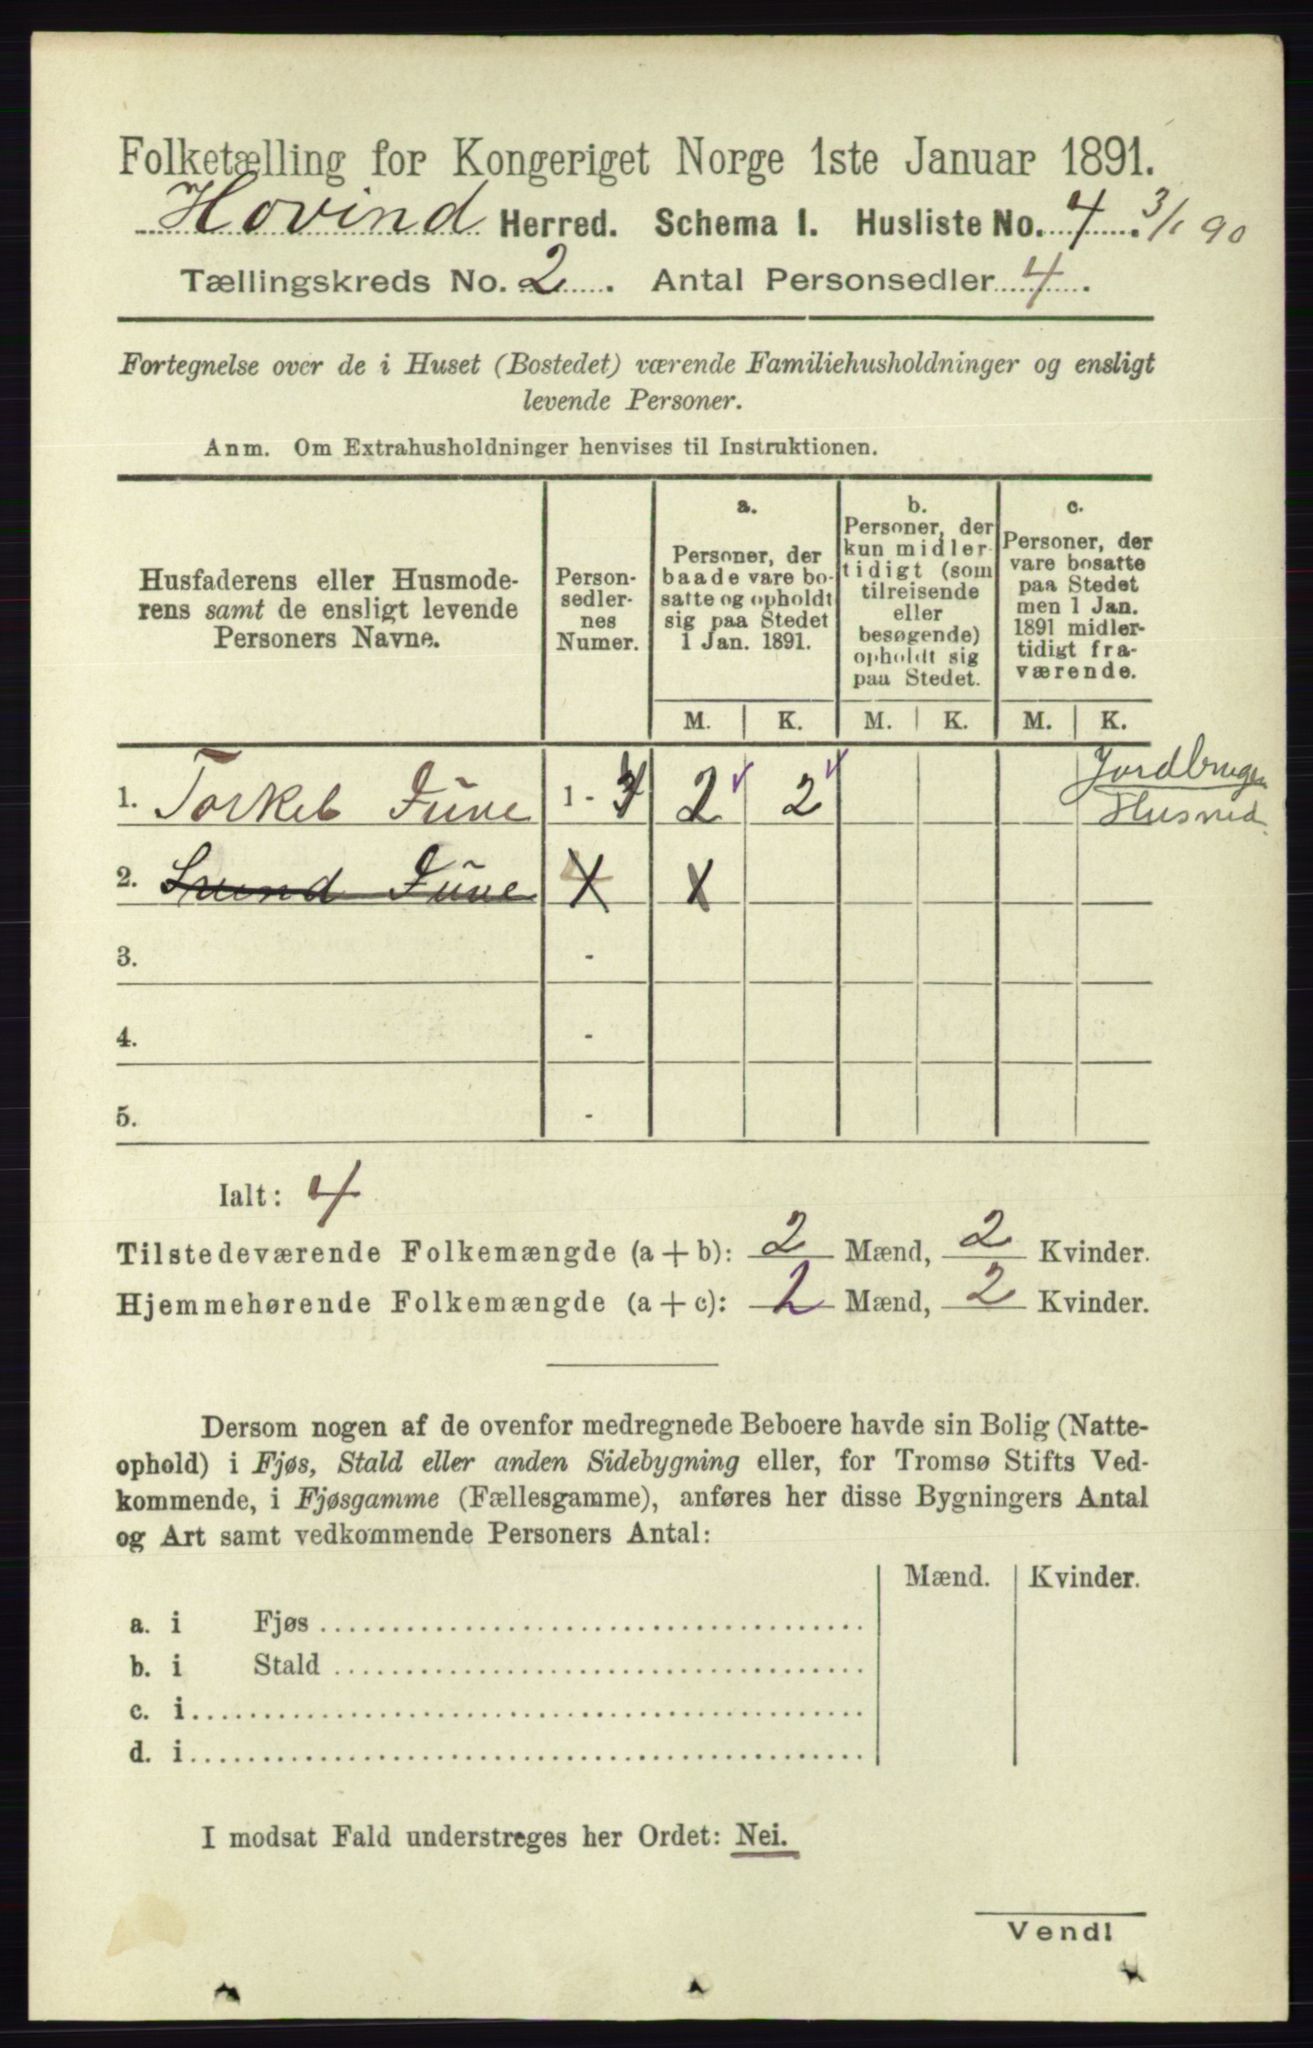 Folketælling for Kongeriget Norge 1ste Januar 1891.
Hovind Herred. Schema I. Husliste No. 4. 3/1 90
Tællingskreds No. 2. Antal Personsedler 4.
Fortegnelse over de i Huset (Bostedet) værende Familiehusholdninger og ensligt
levende Personer.
Anm. Om Extrahusholdninger henvises til Instruktionen.
Husfaderens eller Husmode-
rens samt de ensligt levende
Personers Navne.
Person-
sedler-
nes
Numer.
a.
Personer, der
baade vare bo-
satte og opholdt
sig paa Stedet
1 Jan. 1891.
b.
Personer, der
kun midler-
tidigt (som
tilreisende
eller
besøgende)
opholdt sig
paa Stedet.
c.
Personer, der
vare bosatte
paa Stedet
men 1 Jan.
1891 midler-
tidigt fra-
værende.
M. K. M. K. M. K.
1. Torkel 1 - 2 2
2.
3. -
4. -
5. -
Ialt: 4
Tilstedeværende Folkemængde (a + b): 2 Mænd, 2 Kvinder.
Hjemmehørende Folkemængde (a + c): 2 Mænd, 2 Kvinder.
Dersom nogen af de ovenfor medregnede Beboere havde sin Bolig (Natte-
ophold) i Fjøs, Stald eller anden Sidebygning eller, for Tromsø Stifts Ved-
kommende, i Fjøsgamme (Fællesgamme), anføres her disse Bygningers Antal
og Art samt vedkommende Personers Antal:
Mænd. Kvinder.
a. i Fjøs
b. i Stald
c. i
d. i
I modsat Fald understreges her Ordet: Nei.
Vend!